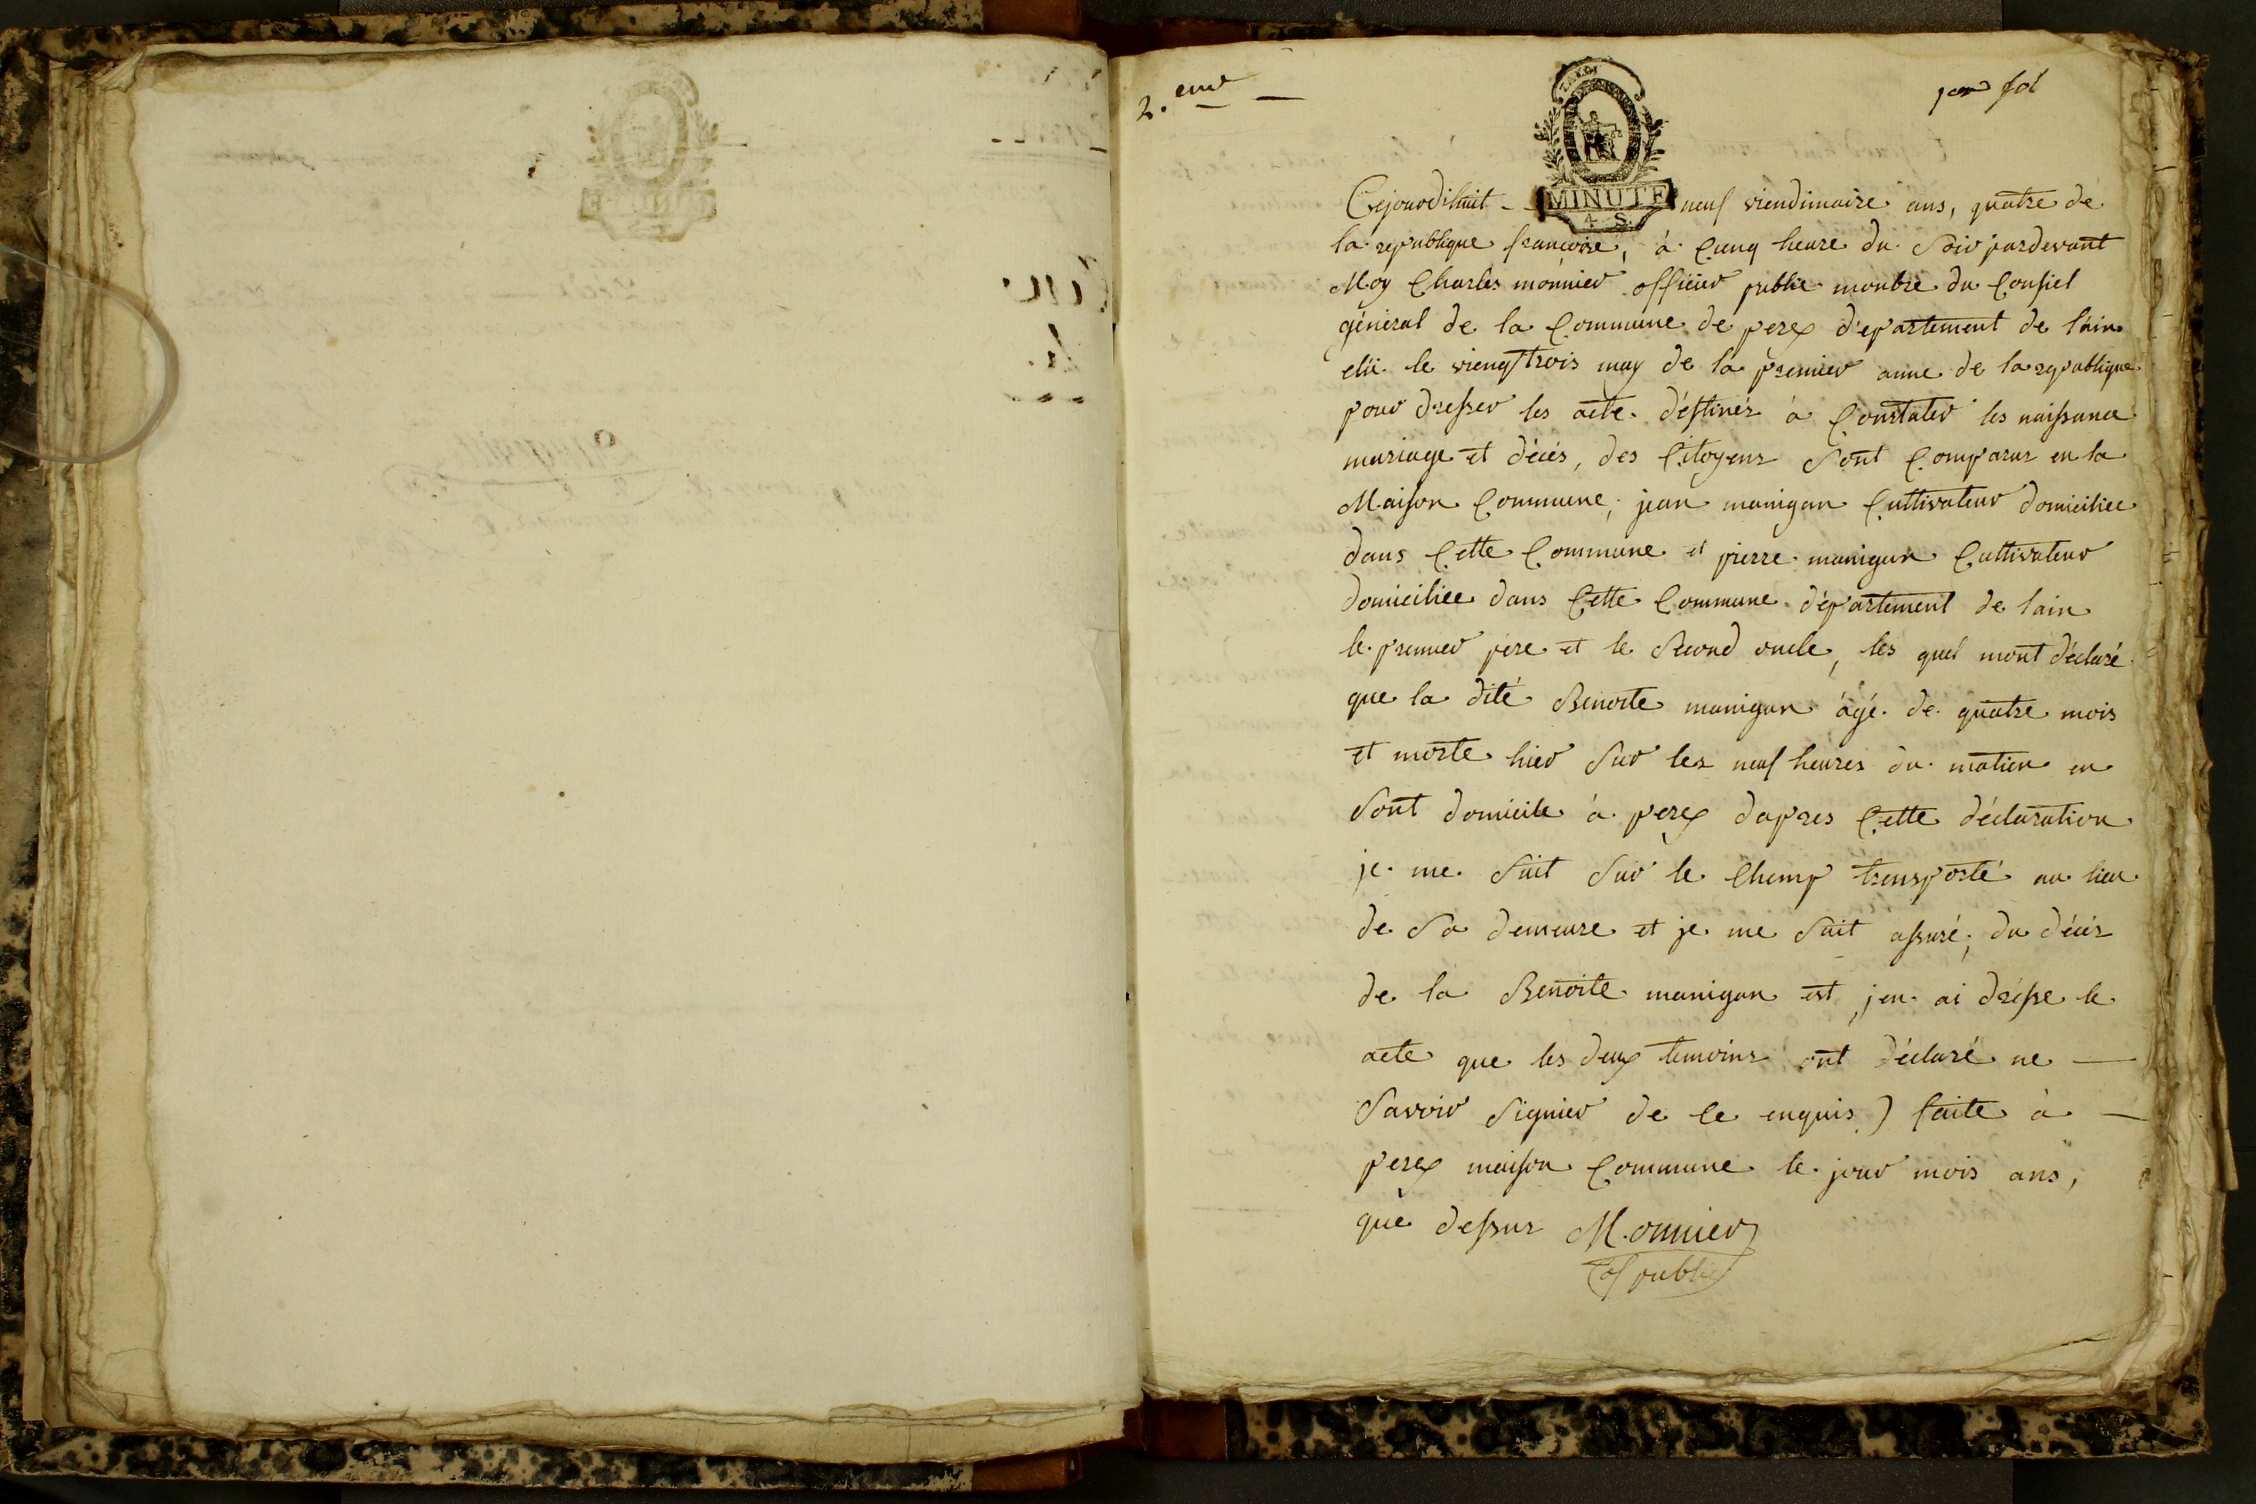 2.eme
1er fol
LA LOI
MINUTE
4 S.
Cejourdihuit - neuf viendimaire ans, quatre de
la republique françoise, à Cenq heure du Soir pardevant
Moy Charles monnier officier public monbre du Consiel
géneral de la Commune de perex département de l'ain
elu le viengttrois may de la premier anne de la republique
pour dresser les acte destinés à Constater les naissance
mariage et décés, des Citoyens Sont Comparus en la
Maison Commune, jean manigan Cultivateur domiciliee
dans Cette Commune et pierre manigan Cultivateur
domiciliee dans Cette Commune département de lain
le premier pere et le Second oncle, les quel mont déclaré
que la dité Benoite manigan ágé de quatre mois
et morte hier Sur les neuf heures du matien en
Sont domicile à perex dapres Cette déclaration
je me Suit Sur le Champ transporté au lieu
de Sa demeure et je me Suit assuré, du décés
de la Benoite manigan est jen ai drésse le
acte que les deux temoins ont déclaré ne
Savoir Signier de Ce enquis) faite à
perex maison Commune le jour mois ans,
que dessus Monnier
of public